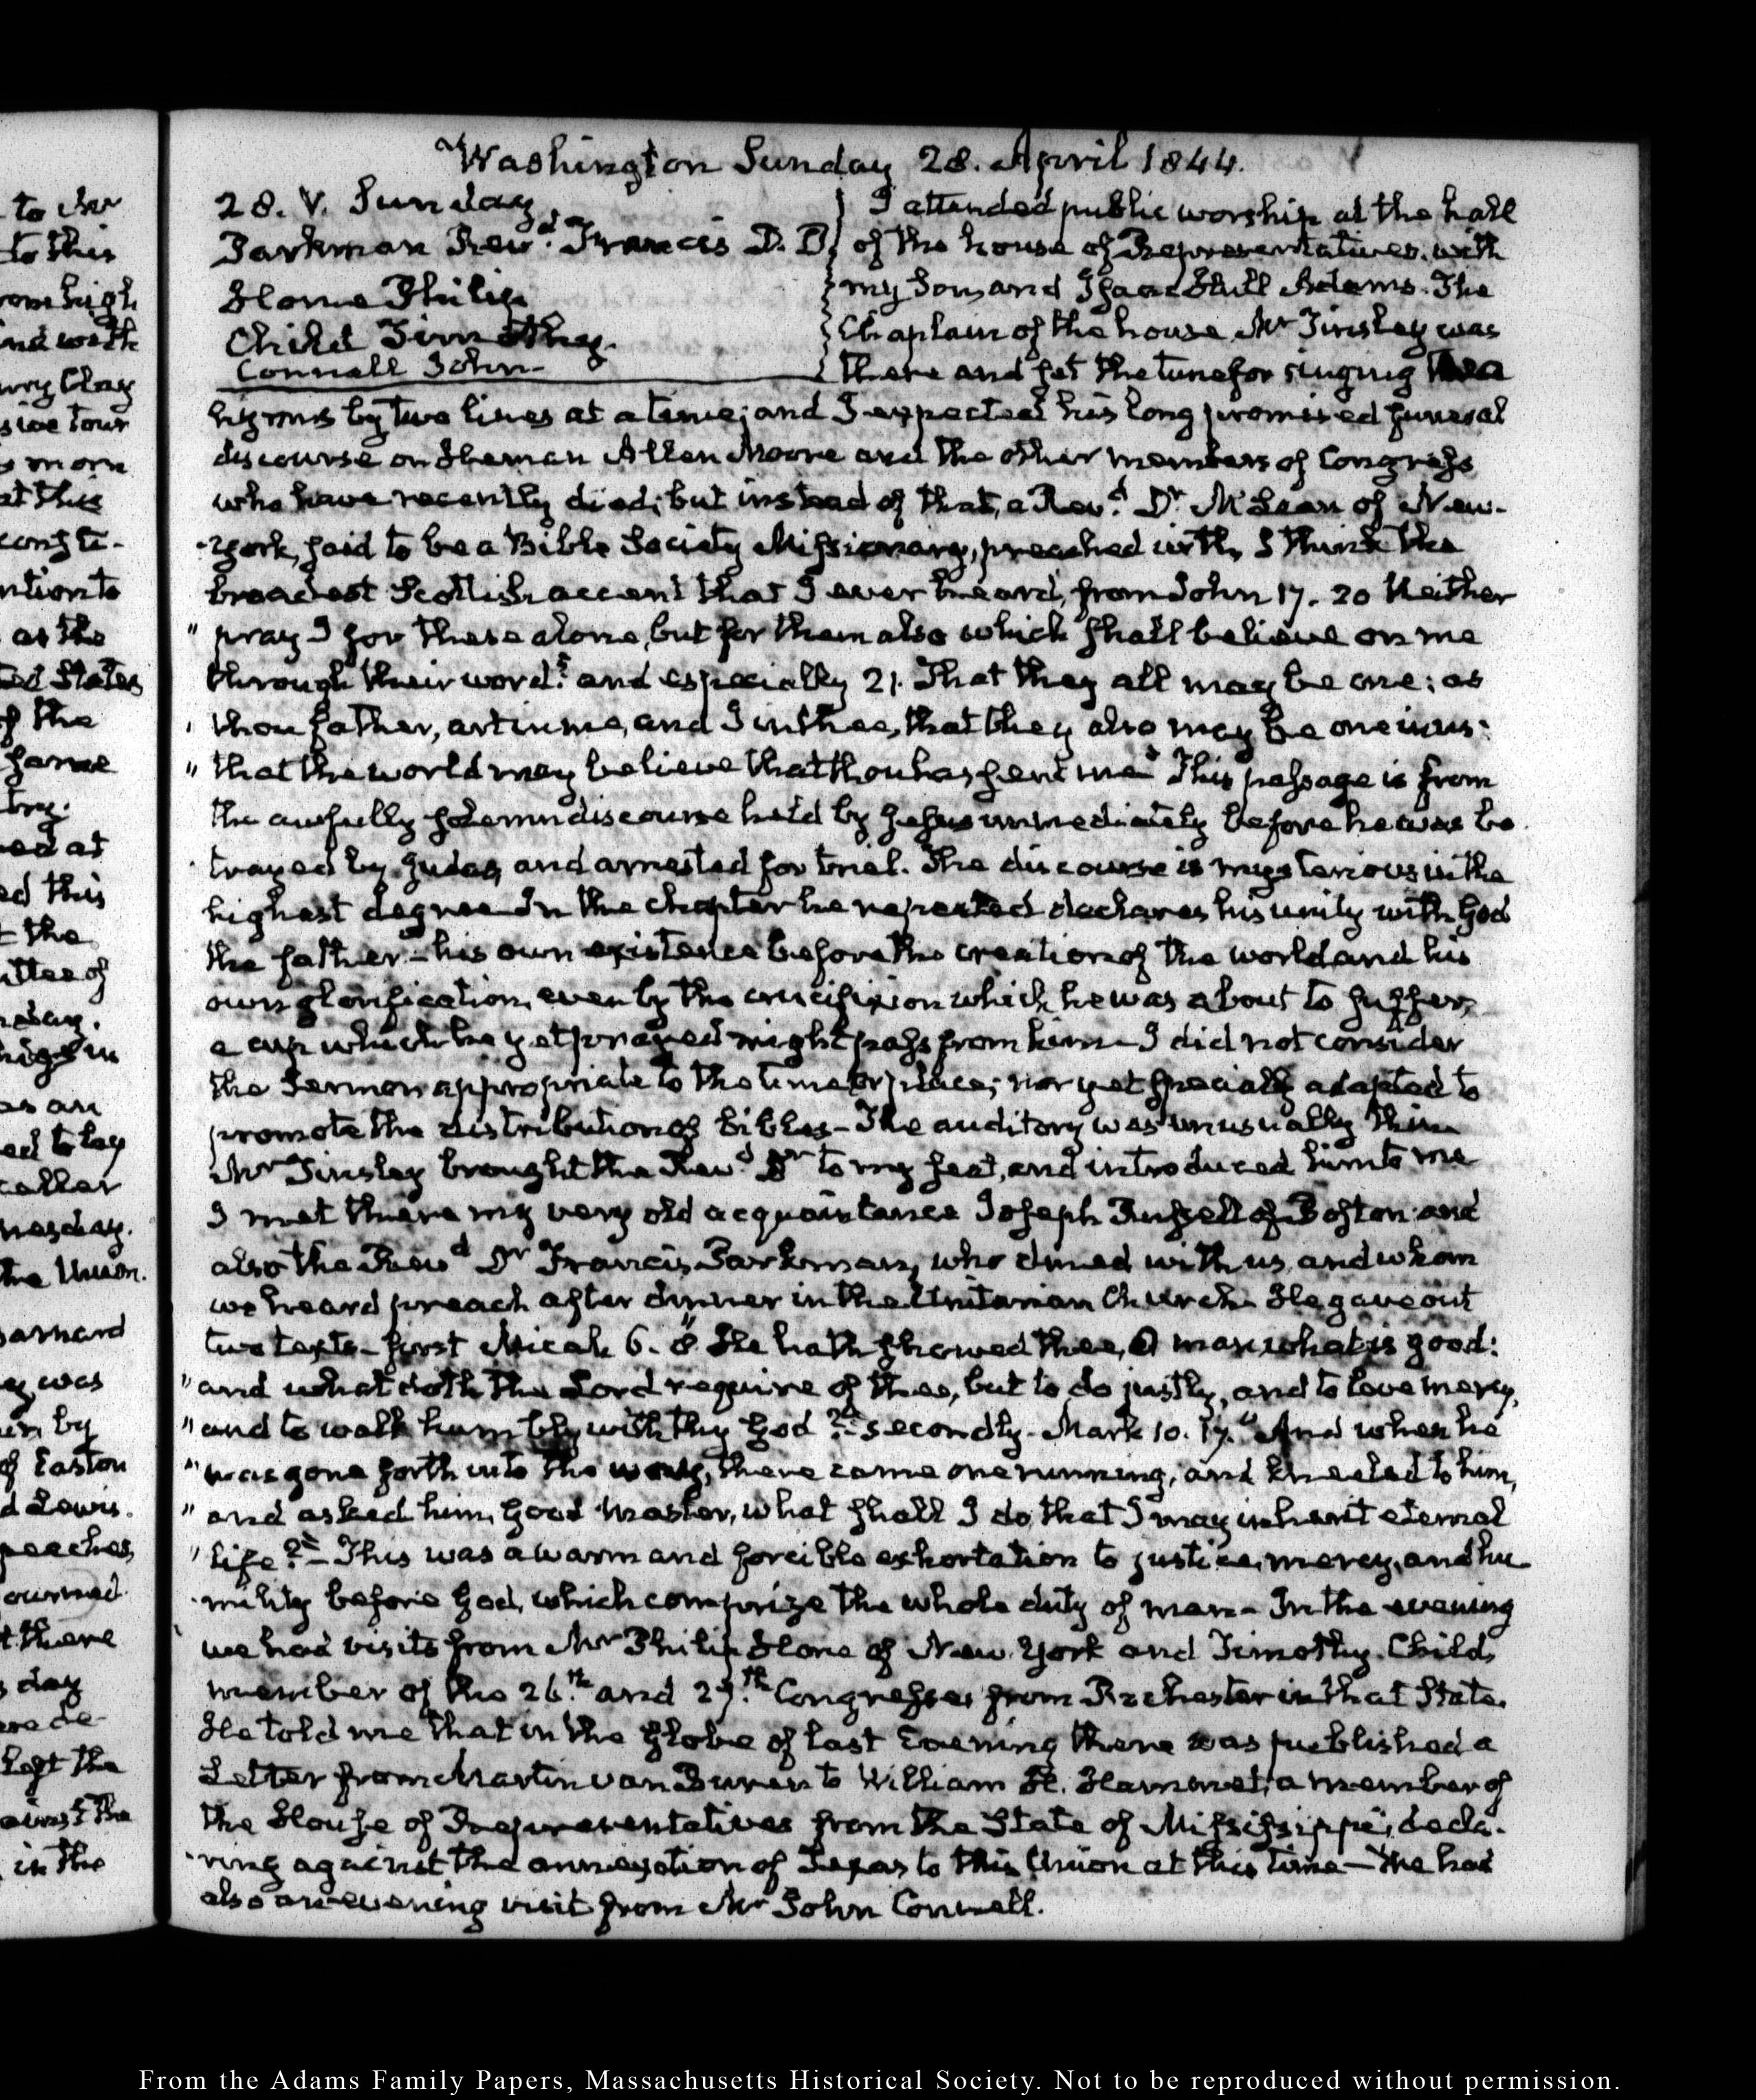 Washington Sunday 28. April 1844.
28. V. Sunday
Parkman Revd. Francis D. D.
Hone Philip
Child Timothy.
Connell John
I attended public worship at the hall
of the house of Representatives, with
my Son, and Isaac Hull Adams. The
Chaplain of the house Mr Tinsley was
there and set the tune for singing the
hymns by two lines at a time; and I expected his long promised funeral
discourse on Heman Allen Moore and the other members of Congress
who have recently died; but instead of that, a Revd. Dr. McLean of New-
-York, said to be a Bible Society Missionary, preached with, I think the
broadest Scottish accent that I ever heard, from John 17. 20 Neither
" pray I for these alone, but for them also which shall believe on me
through their word." and especially 21. That they all may be one; as
' thou father, art in me, and I in thee, that they also may be one in us:
" that the world may believe that thou has sent me" This passage is from
the awfully solemn discourse held by Jesus immediately before he was be
-trayed by Judas, and arrested for trial. The discourse is mysterious in the
highest degree In the chapter he repeated declares his unity with God
the father—his own existence before the creation of the world and his
own glorification, even by the crucifixion which he was about to suffer,
a cup which he yet prayed might pass from him—I did not consider
the Sermon appropriate to the time or place; nor yet specially adapted to
promote the distribution of bibles—The auditory was unusually thin
Mr Tinsley brought the Revd Dr to my seat, and introduced him to me
I met there my very old acquaintance Joseph Russell of Boston and
also the Revd Dr Francis Parkman, who dined with us, and whom
we heard preach after dinner in the Unitarian Church. He gave out
two texts—first Micah 6. 8. "He hath showed thee, O man what is good:
" and what doth the Lord require of thee, but to do justly, and to love mercy,
" and to walk humbly with thy God?"—secondly. Mark 10. 17. "And when he
" was gone forth into the way, there came one running, and kneeled to him,
" and asked him, Good Master, what shall I do that I may inherit eternal
" life?"—This was a warm and forcible exhortation to justice, mercy, and hu-
-mility before God, which comprize the whole duty of man—In the evening
we had visits from Mr Philip Hone of New York and Timothy Child,
member of the 26.th and 27.th Congresses from Rochester in that State.
He told me that in the Globe of last Evening there was published a
Letter from Martin van Buren to William H. Hammet, a member of
the House of Representatives from the State of Mississippi, decla-
-ring against the annexation of Texas to this Union at this time—We had
also an evening visit from Mr John Connell.
From the Adams Family Papers, Massachusetts Historical Society. Not to be reproduced without permission.